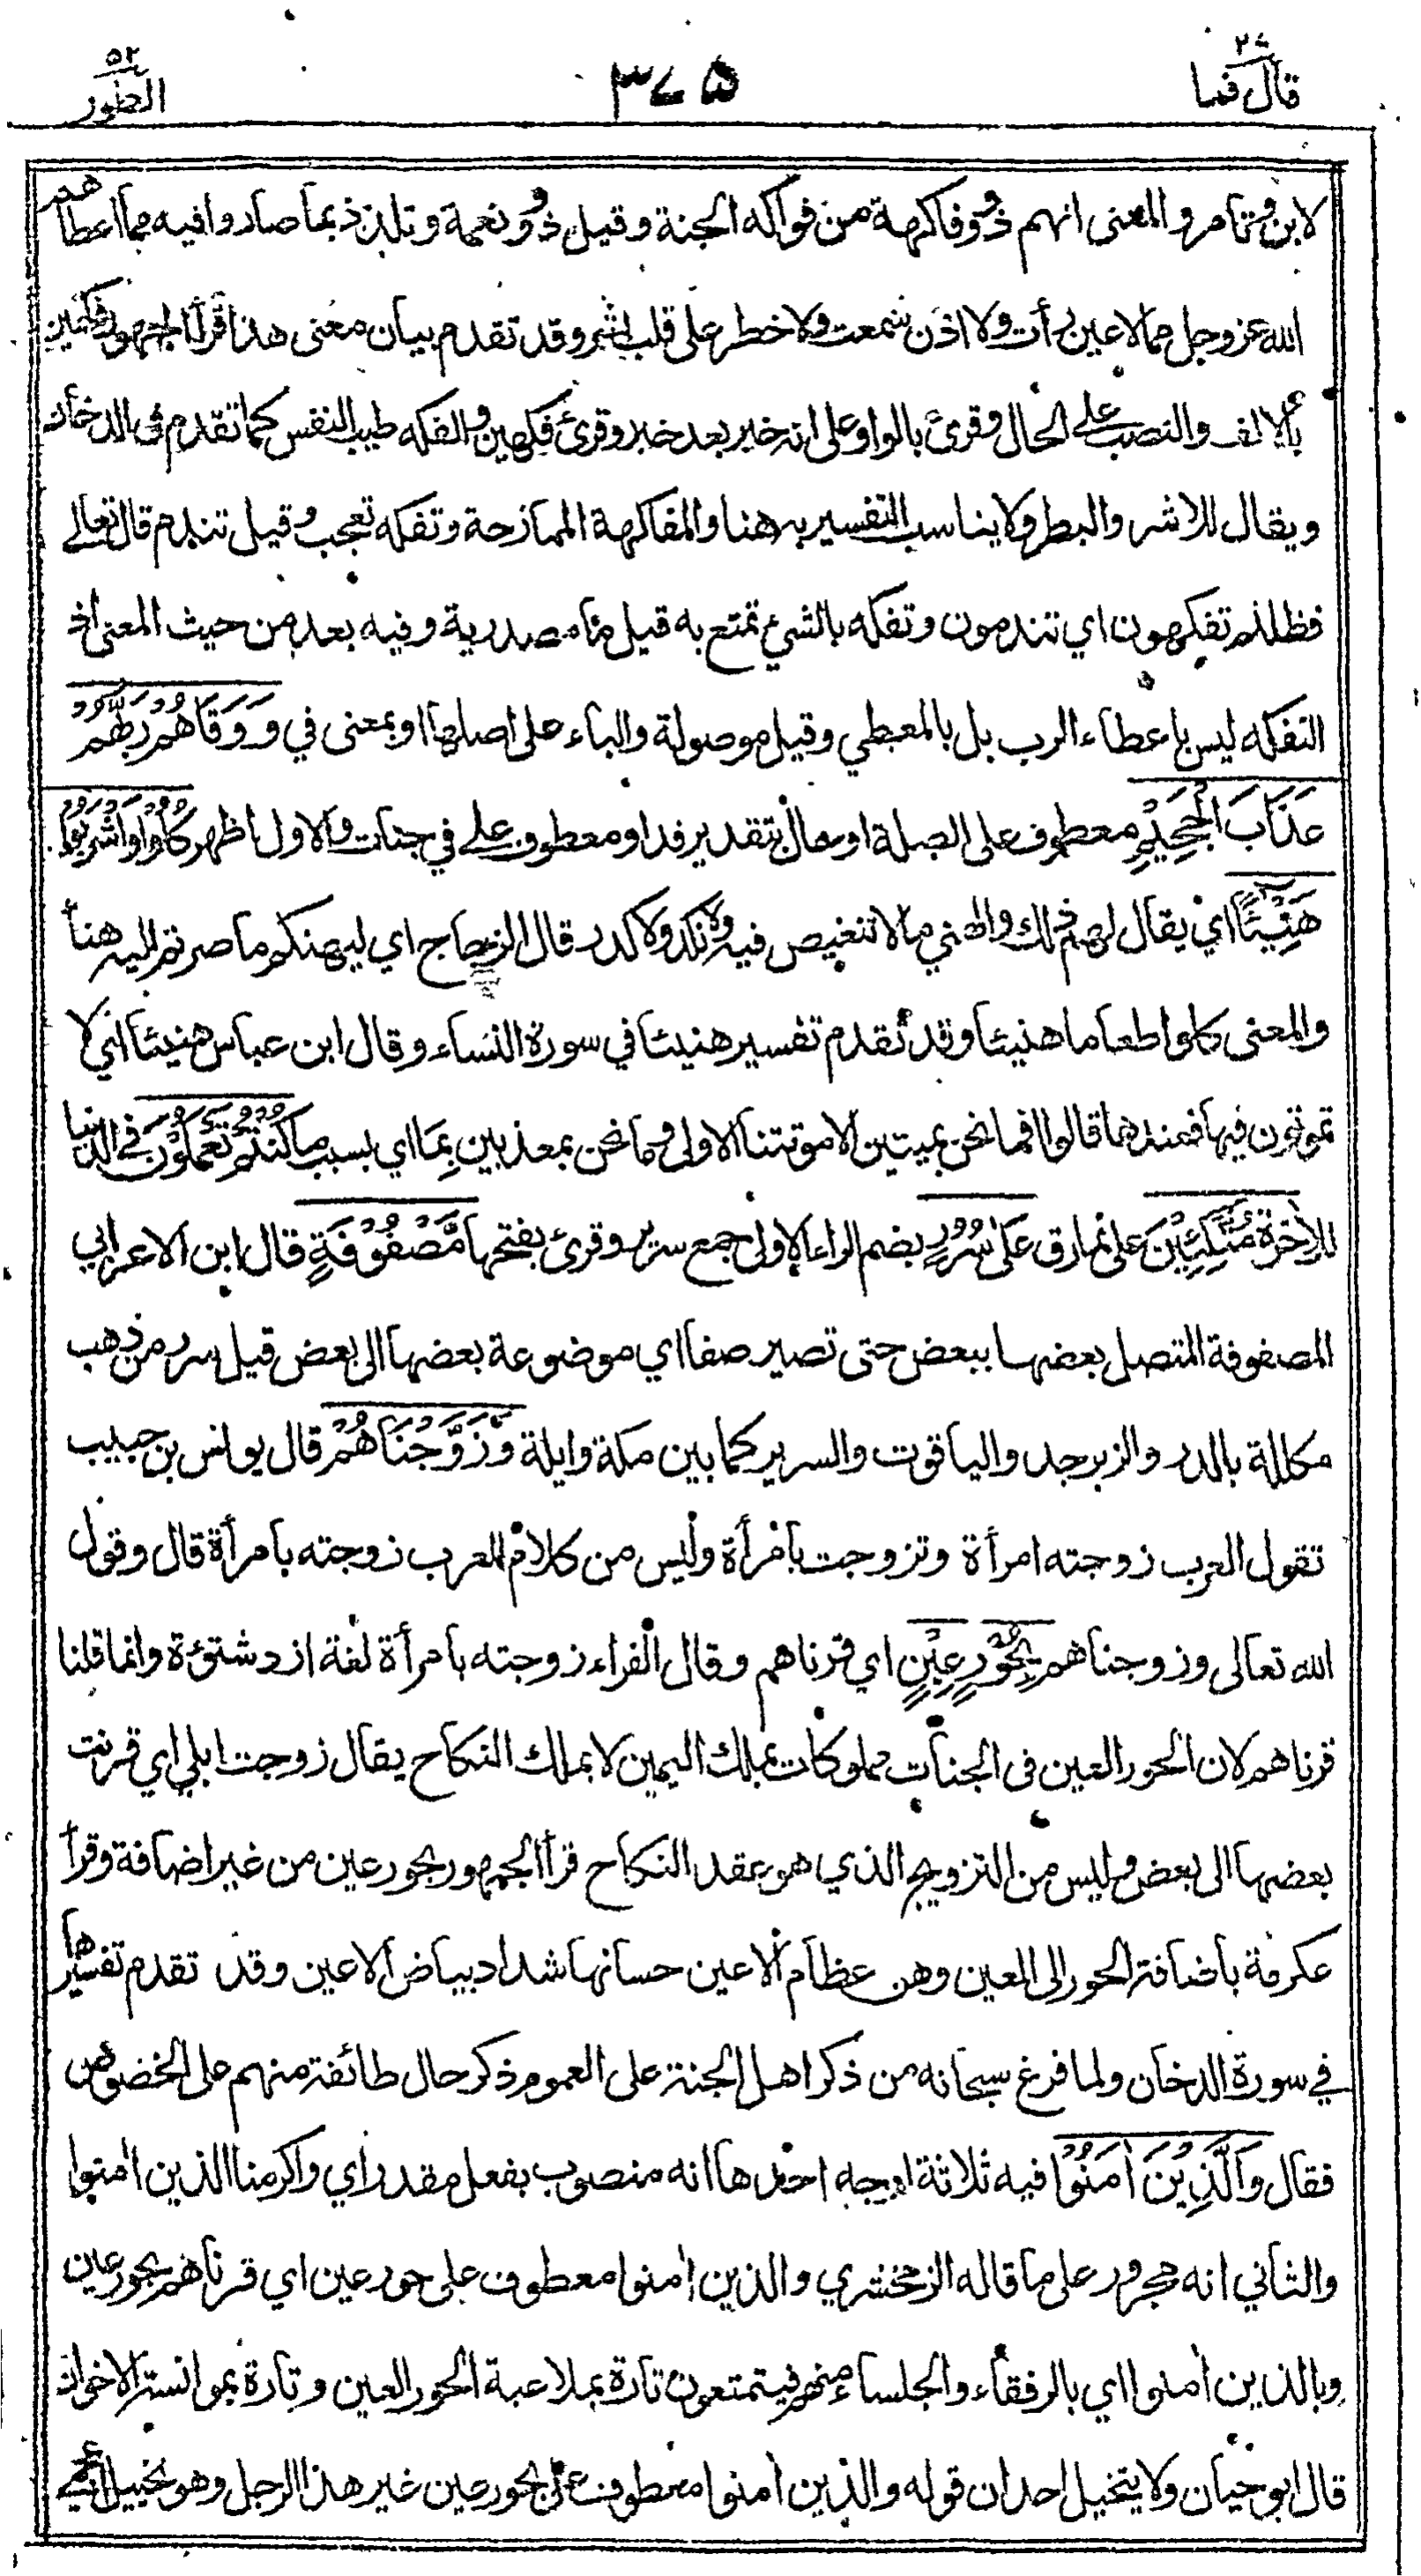 قال فما ٢٧
٣٧٥
الطور ٥٢
لابن وتامر والمعنى انهم ذو وفاكهة من فواكه الجنة وقيل ذو ونعمة وتلذذ بما صاروا فيه مما اعطاهم
الله عز وجل مما لا عين رأت ولا اذن سمعت ولا خطر على قلب بشر وقد تقدم بيان معنى هذا قرأ الجمهور فاكهين
بالالف والنصب على الحال وقرئ بالواو على انه خبر بعد خبر وقرئ فكهين والفكه طيب النفس كما تقدم في الدخان
ويقال للاشر والبطر ولا يناسب التفسير به هنا والمفاكهة الممازحة وتفكه تعجب وقيل تندم قال تعالى
فظلتم تفكهون اي تندمون وتفكه بالشيء تمتع به قيل ما مصدرية وفيه بعد من حيث المعنى اذ
التفكه ليس باعطاء الرب بل بالمعطي وقيل موصولة والباء على اصلها او بمعنى في وَوَقَاهُمْ رَبُّهُمْ
عَذَابَ الْجَحِيْمِ معطوف على الصلة او حال بتقدير قد او معطوف على في جنات والاول اظهر كُلُوْا وَاشْرَبُوْا
هَنِيْئًا اي يقال لهم ذلك والهني ما لا تنغيص فيه ولا نكد ولا كدر قال الزجاج اي ليهنكم ما صرتم اليه هنأ
والمعنى كلوا طعاما هنيئا وقد تقدم تفسير هنيئا في سورة النساء وقال ابن عباس هنيئا اي لا
تموتون فيها فعندها قالوا افما نحن بميتين الا موتتنا الاولى وما نحن بمعذبين بِمَا اي بسبب ما كُنْتُمْ تَعْمَلُوْنَ في الدنيا
للاخرة مُتَّكِئِيْنَ على نمارق عَلٰى سُرُرٍ بضم الراء الاولى جمع سرير وقرئ بفتحها مَّصْفُوْفَةٍ قال ابن الاعرابي
المصفوفة المتصل بعضها ببعض حتى تصير صفا اي موضوعة بعضها الى بعض قيل سرر من ذهب
مكللة بالدر والزبرجد والياقوت والسرير كما بين مكة وايلة وَزَوَّجْنَاهُمْ قال يونس بن حبيب
تقول العرب زوجته امرأة وتزوجت بامرأة وليس من كلام العرب زوجته بامرأة قال وقول
الله تعالى وزوجناهم بِحُوْرٍ عِيْنٍ اي قرناهم وقال الفراء زوجته بامرأة لغة ازد شنوءة وانما قلنا
قرناهم لان الحور العين في الجنات مملوكات بملك اليمين لا بملك النكاح يقال زوجت ابلي اي قرنت
بعضها الى بعض وليس من التزويج الذي هو عقد النكاح قرأ الجمهور بحور عين من غير اضافة وقرأ
عكرمة باضافة الحور الى العين وهن عظام الاعين حسانها شداد بياض الاعين وقد تقدم تفسيرها
في سورة الدخان ولما فرغ سبحانه من ذكر اهل الجنة على العموم ذكر حال طائفة منهم على الخصوص
فقال وَالَّذِيْنَ اٰمَنُوْا فيه ثلاثة اوجه احدها انه منصوب بفعل مقدر اي واكرمنا الذين امنوا
والثاني انه مجرور على ما قاله الزمخشري والذين امنوا معطوف على حور عين اي قرناهم بحور عين
وبالذين امنوا اي بالرفقاء والجلساء منهم فيتمتعون تارة بملاعبة الحور العين وتارة بموانسة الاخوان
قال ابو حيان ولا يتخيل احد ان قوله والذين امنوا معطوف على بحور عين غير هذا الرجل وهو تخييل